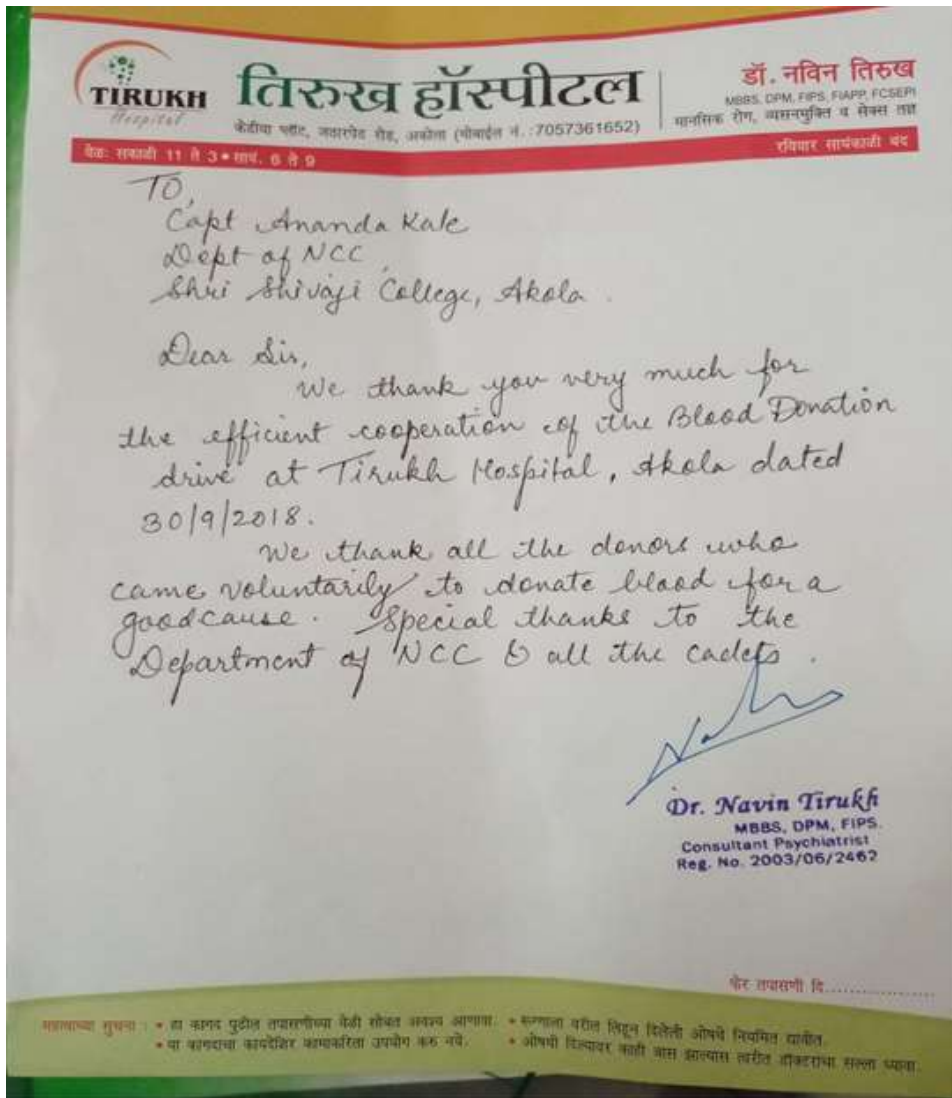 TIRUKH
Hospital
तिरुख हॉस्पीटल
केडीया प्लॉट, जठारपेठ रोड, अकोला (मोबाईल नं. :7057361652)
डॉ. नविन तिरुख
MBBS, DPM, FIPS, FIAPP, FCSEPI
मानसिक रोग, व्यसनमुक्ति व सेक्स तज्ञ
वेळः सकाळी 11 ते 3 • सायं. 6 ते 9
रविवार सायंकाळी बंद
TO,
Capt Ananda Kale
Dept of NCC
Shri Shivaji College, Akola.
Dear Sir,
We thank you very much for
the efficient cooperation of the Blood Donation
drive at Tirukh Hospital, Akola dated
30/9/2018.
We thank all the donors who
came voluntarily to donate blood for a
goodcause. Special thanks to the
Department of NCC & all the cadets.
Dr. Navin Tirukh
MBBS, DPM, FIPS.
Consultant Psychiatrist
Reg. No. 2003/06/2462
फेर तपासणी दि....................
महत्वाच्या सुचना : • हा कागद पुढील तपासणीच्या वेळी सोबत अवश्य आणावा. • रुग्णाला वरील लिहून दिलेली औषधे नियमित द्यावीत.
• या कागदाचा कायदेशिर कामाकरिता उपयोग करु नये. • औषधी दिल्यावर काही त्रास झाल्यास त्वरीत डॉक्टरांचा सल्ला घ्यावा.